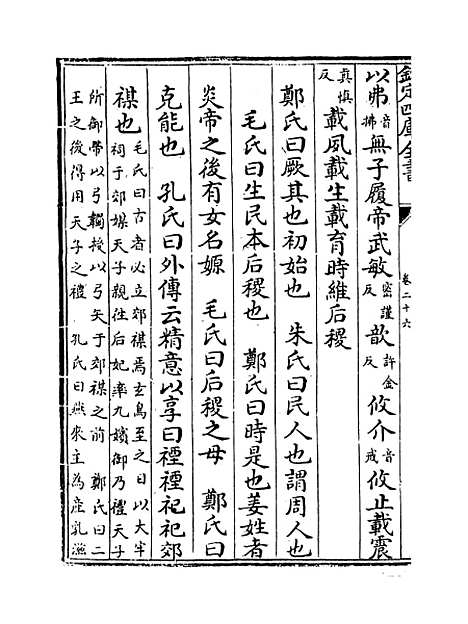 欽定四庫全書
卷二十六
以弗音拂無子履帝武敏密謹反歆許金反攸介音戒攸止載震
真慎反載夙載生載育時維后稷
鄭氏曰厥其也初始也　朱氏曰民人也謂周人也
毛氏曰生民本后稷也　鄭氏曰時是也姜姓者
炎帝之後有女名嫄　毛氏曰后稷之母　鄭氏曰
克能也　孔氏曰外傳云精意以享曰禋禋祀祀郊
禖也毛氏曰古者必立郊禖焉玄鳥至之日以大牢
祠于郊禖天子親往后妃率九嬪御乃禮天子
所御帶以弓韣授以弓矢于郊禖之前　鄭氏曰二
王之後得用天子之禮　孔氏曰燕來主為産乳滋